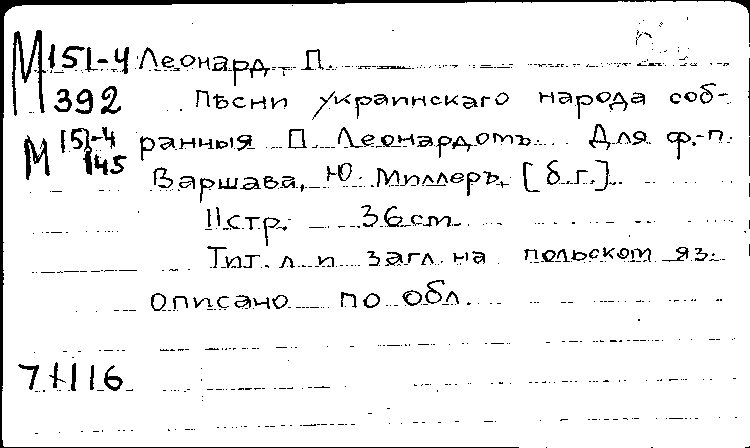 М 151-4 Леонард, П.
392 Пѣсни украинскаго народа соб-
М 151-4 145 ранныя П. Леонардомъ. Для ф.-п.
Варшава, Ю. Миллеръ, [б.г.].
11 стр. 36 cm
Тит. л. и загл. на польском яз.
Описано по обл.
71116